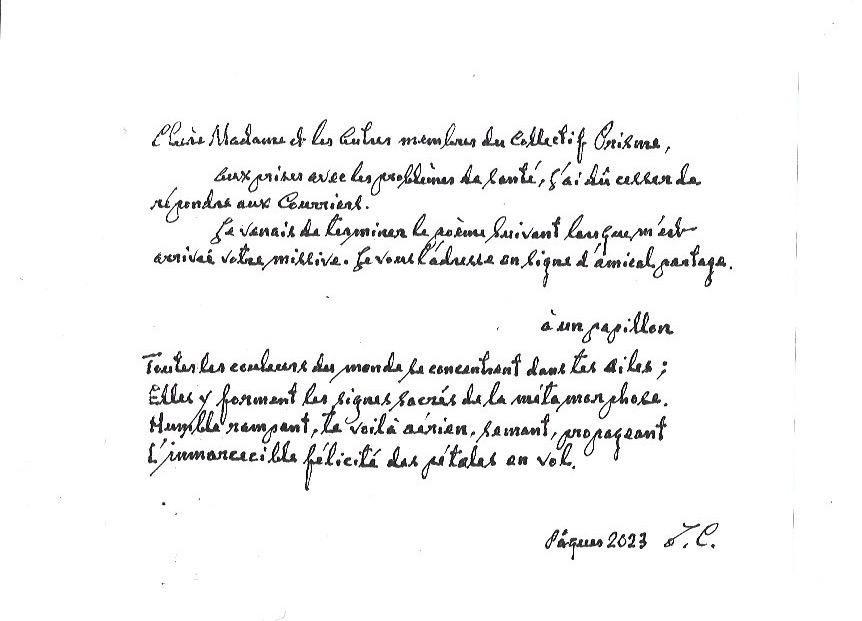 Chère Madame et les autres membres du Collectif Prisme,
aux prises avec les problèmes de santé, j'ai dû cesser de
répondre aux Courriers.
Je venais de terminer le poème suivant lorsque m'est
arrivée votre missive. Je vous l'adresse en signe d'amical partage.
à un papillon
Toutes les couleurs du monde se concentrent dans tes ailes ;
Elles y forment les signes sacrés de la métamorphose.
Humble rampant, te voilà aérien, semant, propageant
L'immarcescible félicité des pétales en vol.
Pâques 2023 J. C.